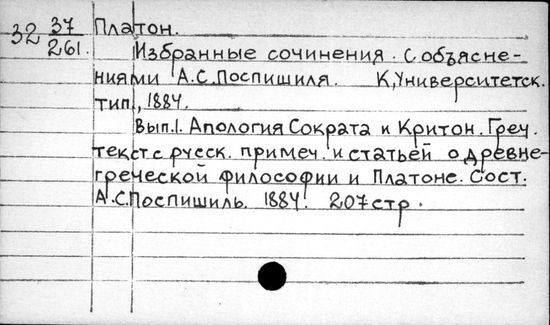 32 37/261. Платон.
Избранные сочинения. С объясне-
ниями А.С.Поспишиля. К, Университетск.
тип., 1884.
Вып.1. Апология Сократа и Критон. Греч.
текст с русск. примеч. и статьей о древне-
греческой философии и Платоне. Сост.
А.С.Поспишиль. 1884. 207 стр.